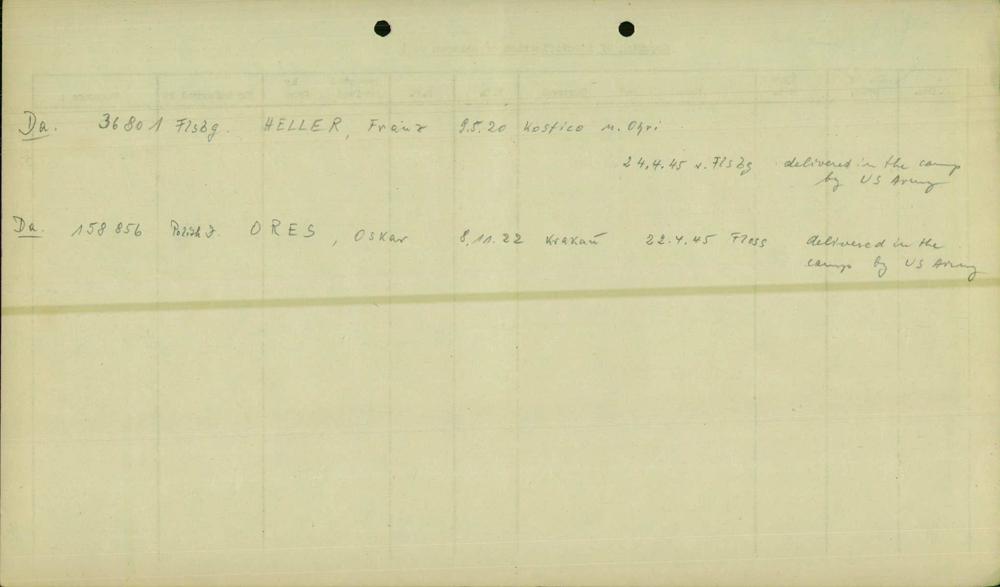 Da. 36801 Flsbg. HELLER, Franz 9.5.20 Kostico m. Ohri
24.4.45 v. Flsbg delivered in the camp
by US Army
Da. 158856 Polish J. ORES, Oskar 8.11.22 Krakau 22.4.45 Floss delivered in the
camp by US Army